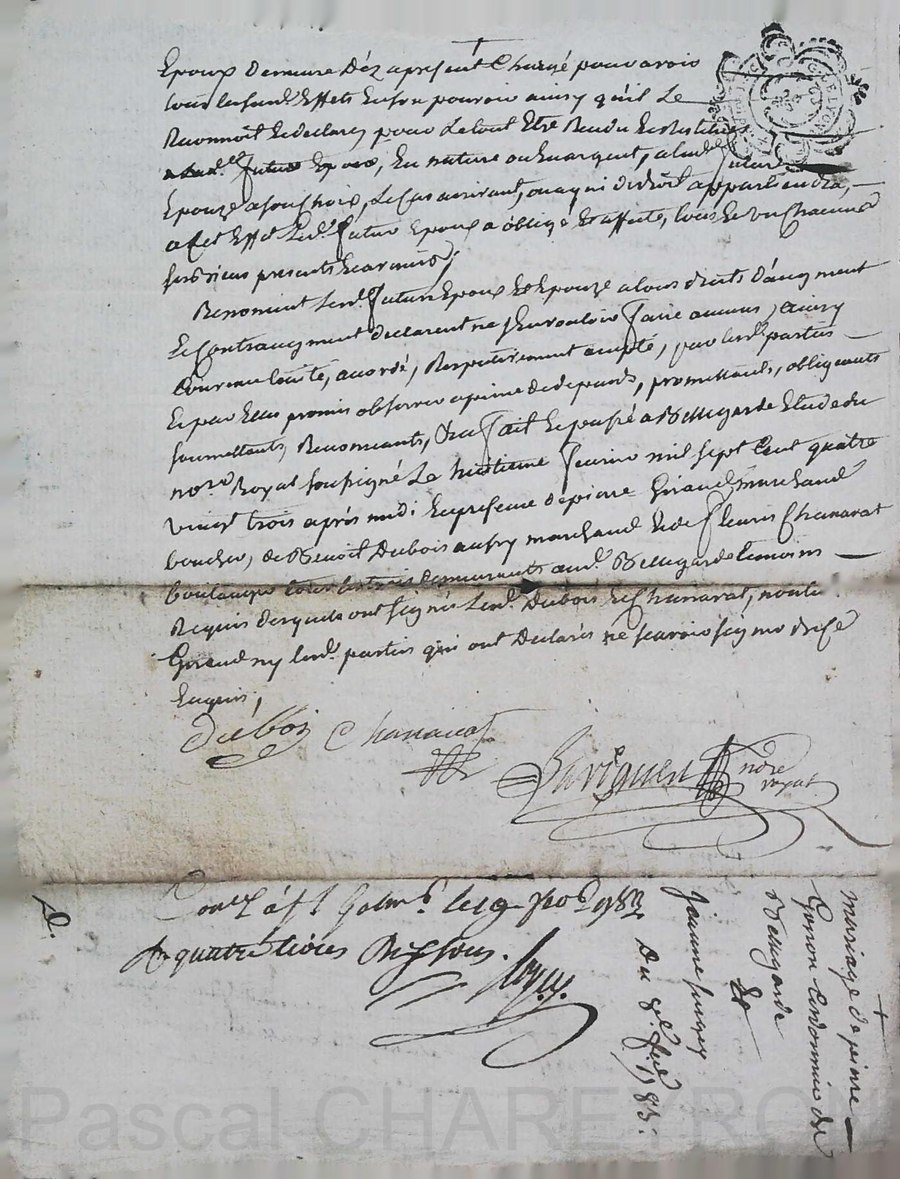 Epoux demeure dèz apresent Chargé pour avoir
tous lesd. Effets En son pouvoir ainsy qu'il Le
Reconnoit Et declare, pour Le tout Etre Rendu Et Restitué
futur Epoux, En nature ou En argent, a lad. future
Epouze a son Choix, Le Cas arrivant, ou a qui de droit appartiendra,
a Cet Effet Led. futur Epoux a obligé Et affecté, tous Et un Chacuns
ses biens presents Et avenir;
Renoncent Lesd. futurs Epoux Et Epouze a tous droits d'augment
Et Contraugment declarent ne s'En vouloir faire aucuns, ainsy
Convenu, accordé, Respectivement accepté, par lesd. parties
Et par Elles promis observer a peine de depends, promettants, obligeants
soumettants, Renonceants, fait Et passé a Bellegarde Etude du
nore. Royal soussigné Le huitieme fevrier mil sept Cent quatre
vingt trois après midi En presence de pierre Giraud marchand
boucher, de Benoit Dubois aussy marchand Et de fleuris Chanavat
boulanger tous les trois demeurants aud. Bellegarde temoins
Requis Lesquels ont signés Lesd. Dubois Et Chanavat, non led.
Giraud ny lesd. parties qui ont Declarés ne scavoir signer de Ce
Enquis,
Dubois Chanavat
nore
royal
Con. à St Galm. le 19 1783
quatre livres Dix sous.
mariage de pierre
Cordonnier de
Bellegarde
Et
jeanne
Du 8e. fev. 1783.
Pascal CHAREYRON